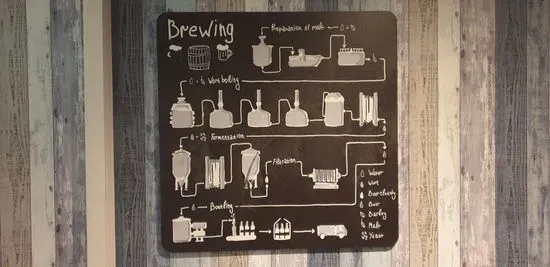 Brewing
Preparation of malt
Wort boiling
Fermentation
Filtration
Bottling
Water
Wort
Beer cloudy
Beer
Barley
Malt
Yeast